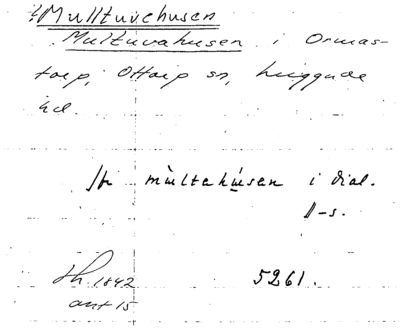 Mulltuvehusen
Multuvahusen i Ormas-
torp, Ottarp sn, Luggude
hd.
Jfr mùltehúsen i dial.
ll-s.
Th. 1842
ant 15
5261.